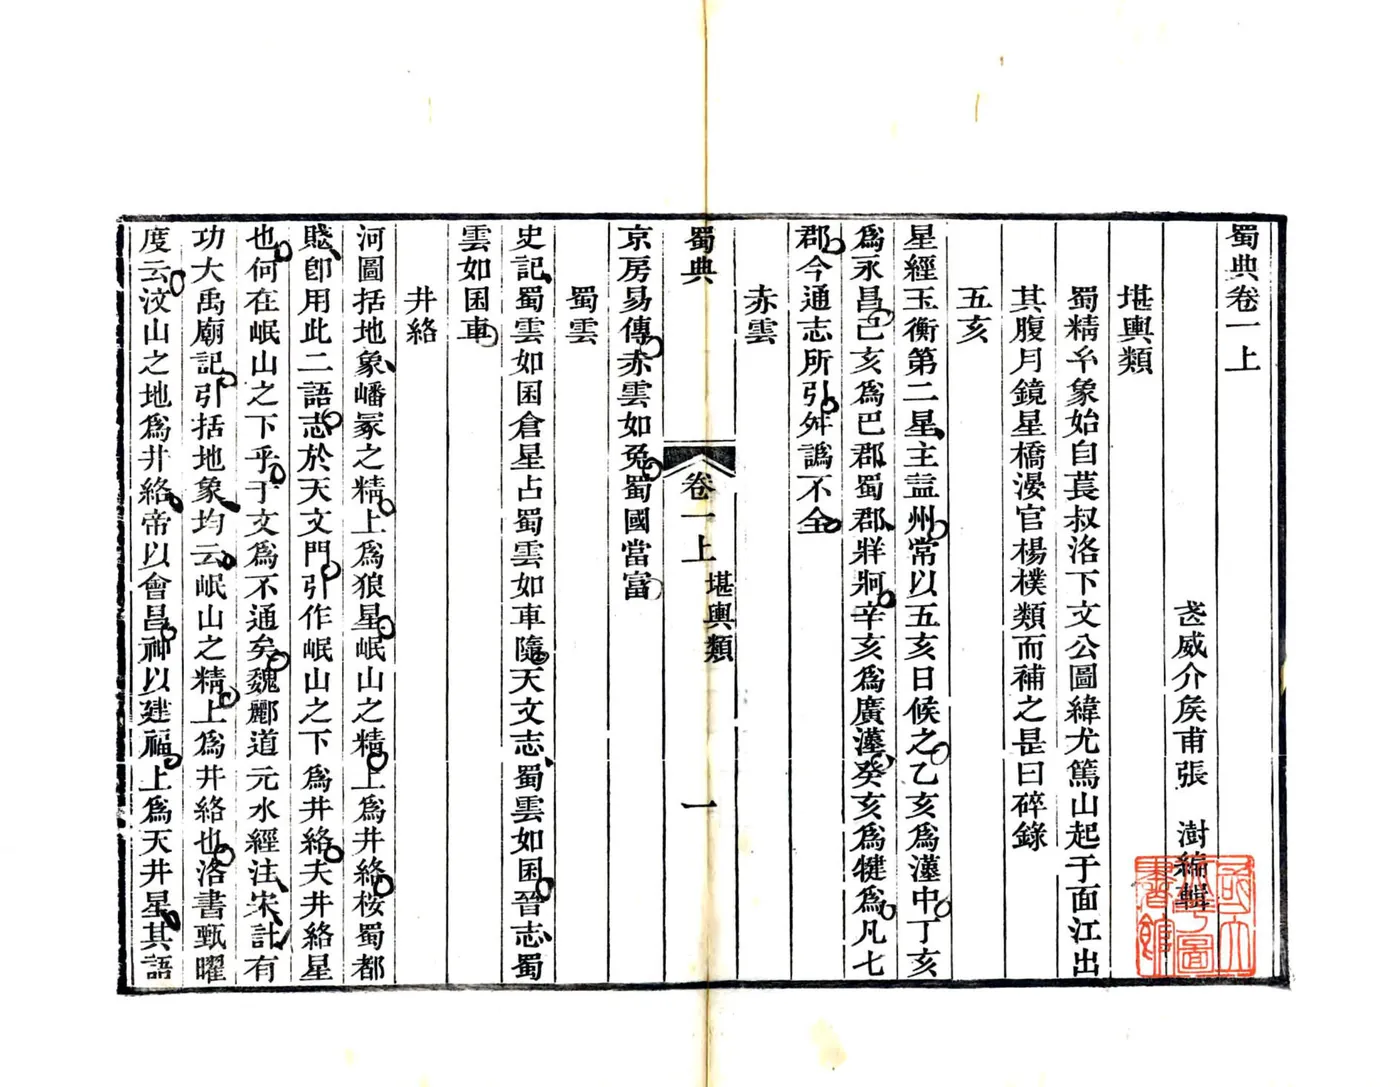 蜀典卷一上
武威介矦甫張　澍編輯
堪輿類
蜀精糸象始自萇叔洛下文公圖緯尤篤山起于面江出
其腹月鏡星橋漫官楊樸類而補之是曰碎錄
五亥
星經玉衡第二星主益州常以五亥日候之乙亥爲漢中丁亥
爲永昌己亥爲巴郡蜀郡牂牁辛亥爲廣漢癸亥爲犍爲凡七
郡今通志所引舛譌不全
赤雲
京房易傳赤雲如兔蜀國當富
蜀典
卷一上
堪輿類
一
蜀雲
史記蜀雲如囷倉星占蜀雲如車隨天文志蜀雲如囷晉志蜀
雲如囷車
井絡
河圖括地象嶓冢之精上爲狼星岷山之精上爲井絡桉蜀都
賦卽用此二語志於天文門引作岷山之下爲井絡夫井絡星
也何在岷山之下乎于文爲不通矣魏酈道元水經注宋計有
功大禹廟記引括地象均云岷山之精上爲井絡也洛書甄曜
度云汶山之地爲井絡帝以會昌神以建福上爲天井星其語